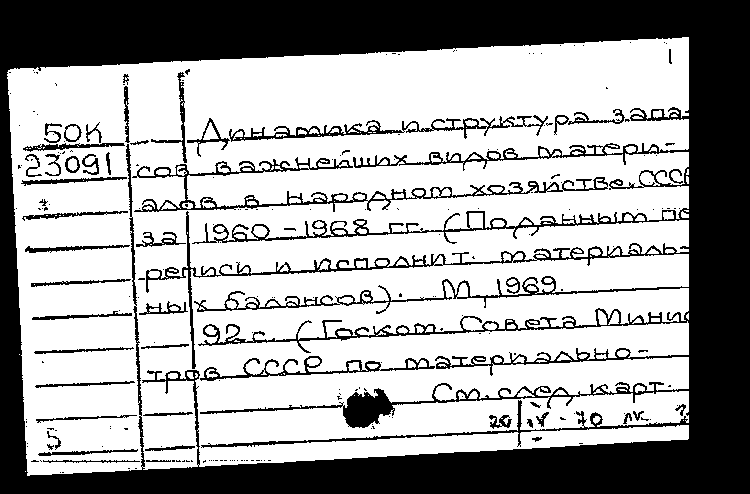 1
50К Динамика и структура запа-
23091 сов важнейших видов матери-
алов в народном хозяйстве СССР
за 1960-1968 гг. (По данным пе
реписи и исполнит. материаль-
ных балансов). М., 1969.
92 с. (Госком. Совета Минис
тров СССР по материально-
См. след. карт.
5 20 IV-70 лк